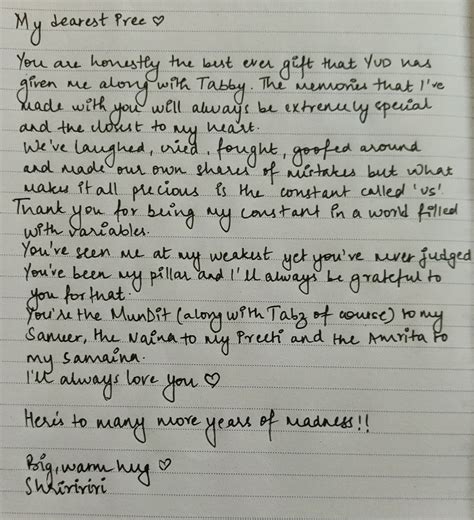 My dearest Pree ♡
You are honestly the best ever gift that YUD has
given me along with Tabby. The memories that I've
made with you will always be extremely special
and the closest to my heart.
We've laughed, cried, fought, goofed around
and made our own shares of mistakes but what
makes it all precious is the constant called 'us'.
Thank you for being my constant in a world filled
with variables.
You've seen me at my weakest yet you've never judged
You've been my pillar and I'll always be grateful to
you for that.
You're the MunDit (along with Tabz of course) to my
Sameer, the Naina to my Preeti and the Amrita to
my Samaina.
I'll always love you ♡
Here's to many more years of madness!!
Big, warm hug ♡
Shriririri